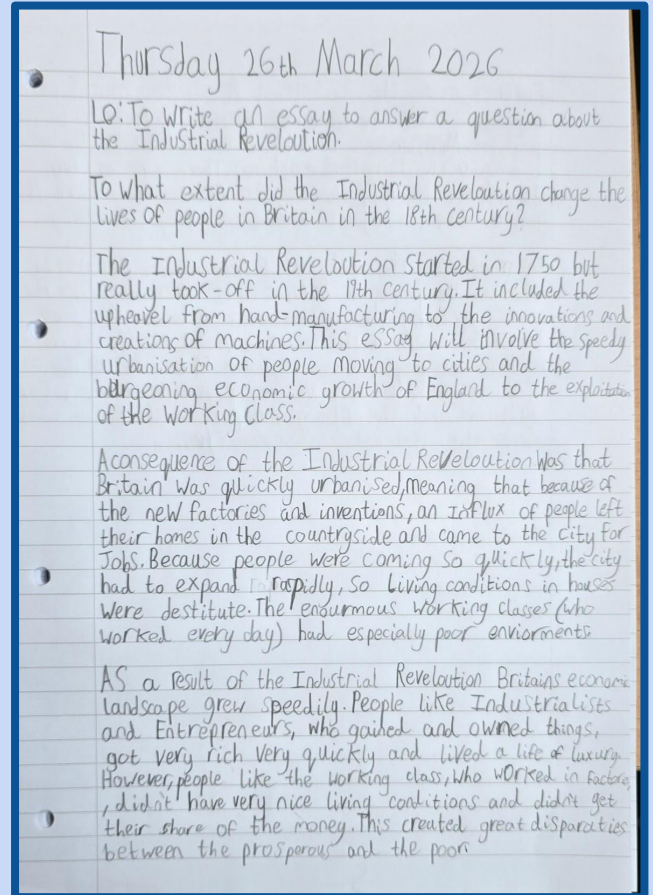 Thursday 26th March 2026
LO: To write an essay to answer a question about
the Industrial Reveloution.
To what extent did the Industrial Reveloution change the
lives of people in Britain in the 18th century?
The Industrial Reveloution started in 1750 but
really took-off in the 19th century. It included the
upheavel from hand-manufacturing to the innovations and
creations of machines. This essay will involve the speedy
urbanisation of people moving to cities and the
burgeoning economic growth of England to the exploitation
of the working class.
A consequence of the Industrial Reveloution was that
Britain was quickly urbanised, meaning that because of
the new factories and inventions, an influx of people left
their homes in the countryside and came to the city for
Jobs. Because people were coming so quickly, the city
had to expand rapidly, so living conditions in houses
were destitute. The enourmous working classes (who
worked every day) had especially poor enviorments.
As a result of the Industrial Reveloution Britains economic
landscape grew speedily. People like Industrialists
and Entrepreneurs, who gained and owned things,
got very rich very quickly and lived a life of luxury.
However, people like the working class, who worked in factories
, didn't have very nice living conditions and didn't get
their share of the money. This created great disparaties
between the prosperous and the poor.